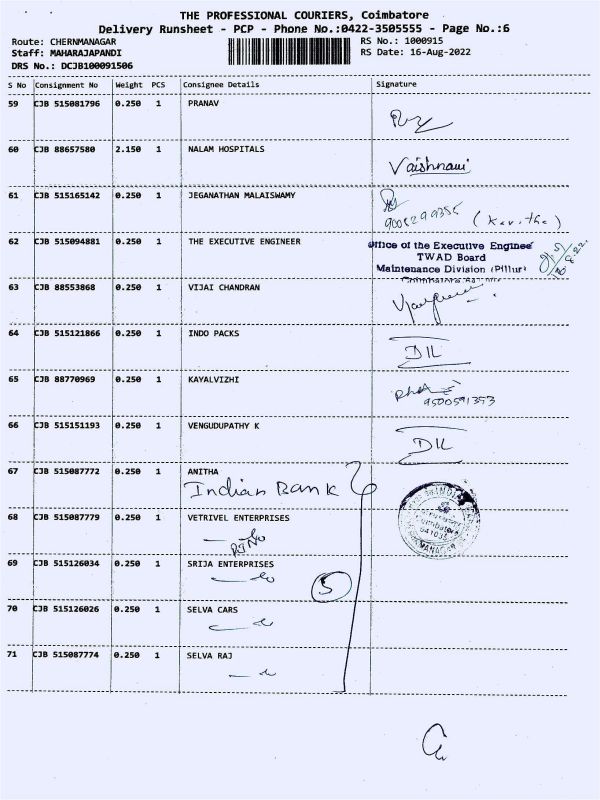 THE PROFESSIONAL COURIERS, Coimbatore
Delivery Runsheet - PCP - Phone No.:0422-3505555 - Page No.:6
Route: CHERNMANAGAR RS No.: 1000915
Staff: MAHARAJAPANDI RS Date: 16-Aug-2022
DRS No.: DCJB100091506
S No Consignment No Weight PCS Consignee Details Signature
59 CJB 515081796 0.250 1 PRANAV
60 CJB 88657580 2.150 1 NALAM HOSPITALS
Vaishnavi
61 CJB 515165142 0.250 1 JEGANATHAN MALAISWAMY
(Kavitha)
62 CJB 515094881 0.250 1 THE EXECUTIVE ENGINEER
Office of the Executive Engineer
TWAD Board
Maintenance Division (Pillur)
63 CJB 88553868 0.250 1 VIJAI CHANDRAN
64 CJB 515121866 0.250 1 INDO PACKS
DIL
65 CJB 88770969 0.250 1 KAYALVIZHI
9500591353
66 CJB 515151193 0.250 1 VENGUDUPATHY K
DIL
67 CJB 515087772 0.250 1 ANITHA
Indian Bank
68 CJB 515087779 0.250 1 VETRIVEL ENTERPRISES
69 CJB 515126034 0.250 1 SRIJA ENTERPRISES
5
70 CJB 515126026 0.250 1 SELVA CARS
71 CJB 515087774 0.250 1 SELVA RAJ